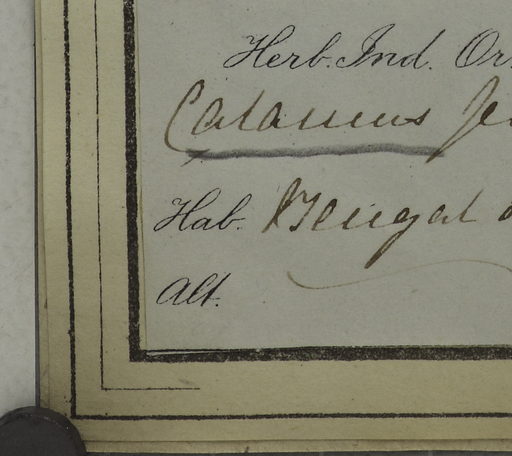 Herb. Ind. Or.
Calamus
Hab. Bengal
Alt.